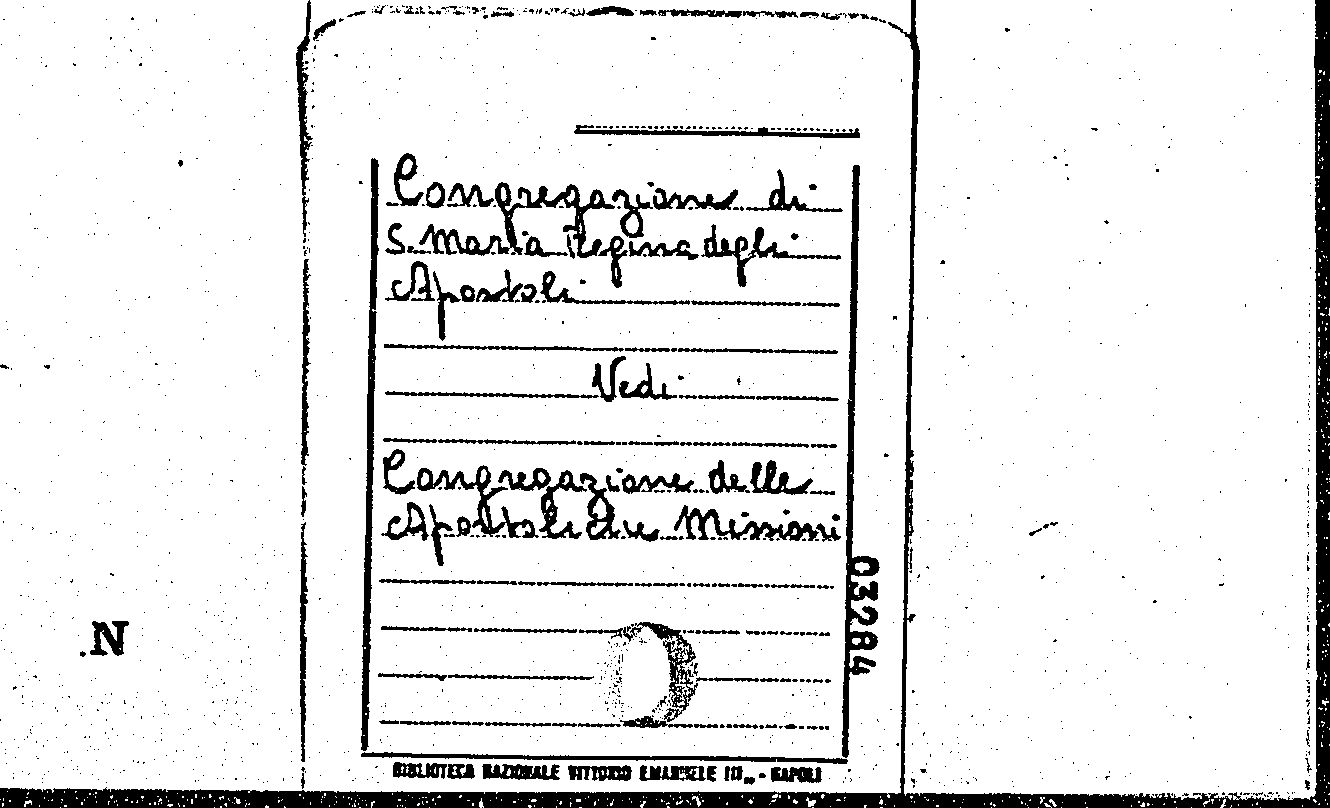 Congregazione di
S. Maria Regina degli
Apostoli
Vedi
Congregazione delle
Apostoliche Missioni
03284
.N
BIBLIOTECA NAZIONALE VITTORIO EMANUELE III„ - NAPOLI